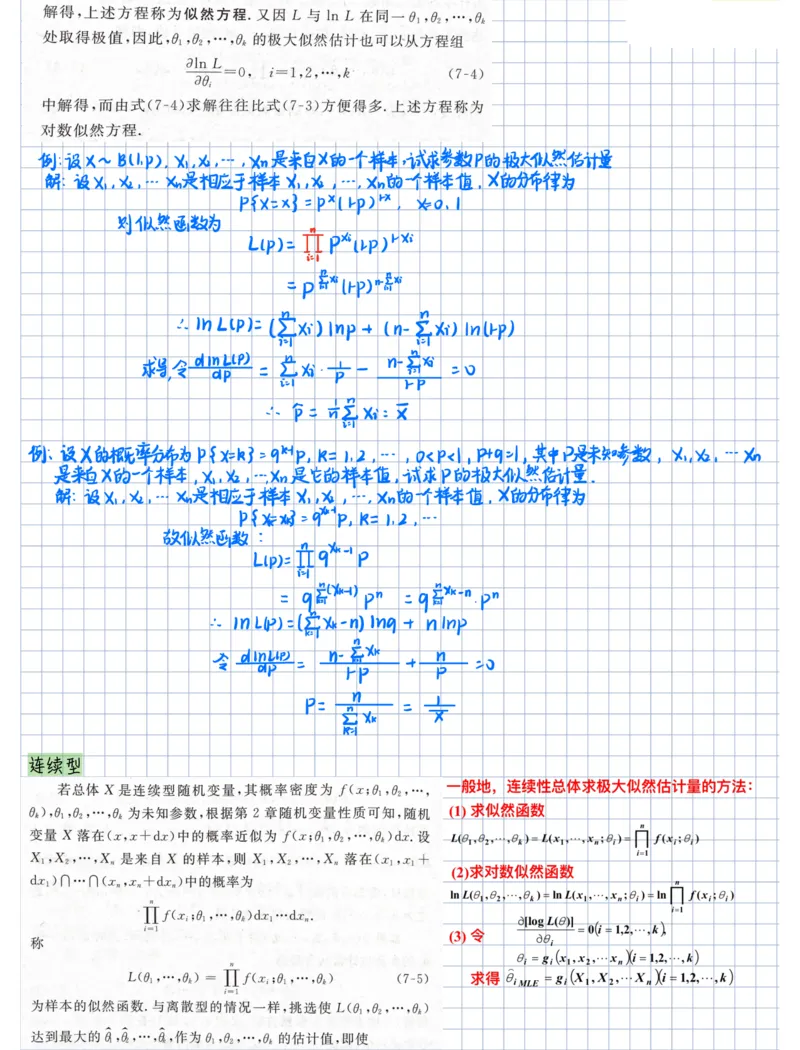 解得,上述方程称为似然方程. 又因 L 与 ln L 在同一 θ₁,θ₂,…,θₖ
处取得极值,因此,θ₁,θ₂,…,θₖ 的极大似然估计也可以从方程组
∂ln L/∂θᵢ=0, i=1,2,…,k (7-4)
中解得,而由式(7-4)求解往往比式(7-3)方便得多. 上述方程称为
对数似然方程.
例:设X~B(1,p), X₁,X₂,…,Xn是来自X的一个样本,试求参数P的极大似然估计量
解:设X₁,X₂,…Xn是相应于样本X₁,X₂,…,Xn的一个样本值,X的分布律为
P{X=x}=pˣ(1-p)¹⁻ˣ, x=0,1
则似然函数为
L(p)=∏ᵢ₌₁ⁿ p^(xᵢ)(1-p)^(1-xᵢ)
=p^(∑ᵢ₌₁ⁿxᵢ)(1-p)^(n-∑ᵢ₌₁ⁿxᵢ)
∴ ln L(p)=(∑ᵢ₌₁ⁿ xᵢ)lnp+(n-∑ᵢ₌₁ⁿ xᵢ)ln(1-p)
求导,令 dlnL(P)/dp = ∑ᵢ₌₁ⁿ xᵢ·1/p - (n-∑ᵢ₌₁ⁿxᵢ)/(1-p) =0
∴ p̂ = 1/n ∑ᵢ₌₁ⁿ Xᵢ = X̄
例:设X的概率分布为P{X=k}=qᵏ⁻¹p, k=1,2,…, 0<p<1, p+q=1, 其中P是未知参数, X₁,X₂,…Xn
是来自X的一个样本,X₁,X₂,…,Xn是它的样本值,试求P的极大似然估计量.
解:设X₁,X₂,…Xn是相应于样本X₁,X₂,…,Xn的一个样本值,X的分布律为
P{X=xₖ}=q^(xₖ-1)p, k=1,2,…
故似然函数:
L(p)=∏ᵢ₌₁ⁿ q^(xₖ-1) p
= q^(∑ᵢ₌₁ⁿ(xₖ-1)) pⁿ = q^(∑ᵢ₌₁ⁿxₖ-n)·pⁿ
∴ ln L(p)=(∑ₖ₌₁ⁿ xₖ-n)lnq + n lnp
令 dlnL(P)/dp = (n-∑ₖ₌₁ⁿxₖ)/(1-p) + n/p =0
P= n/∑ₖ₌₁ⁿxₖ = 1/x̄
连续型
若总体 X 是连续型随机变量,其概率密度为 f(x;θ₁,θ₂,…,
θₖ),θ₁,θ₂,…,θₖ 为未知参数,根据第 2 章随机变量性质可知,随机
变量 X 落在(x,x+dx)中的概率近似为 f(x;θ₁,θ₂,…,θₖ)dx. 设
X₁,X₂,…,Xₙ 是来自 X 的样本,则 X₁,X₂,…,Xₙ 落在(x₁,x₁+
dx₁)∩…∩(xₙ,xₙ+dxₙ)中的概率为
∏ᵢ₌₁ⁿ f(xᵢ;θ₁,…,θₖ)dx₁…dxₙ.
称
L(θ₁,…,θₖ) = ∏ᵢ₌₁ⁿ f(xᵢ;θ₁,…,θₖ) (7-5)
为样本的似然函数. 与离散型的情况一样,挑选使 L(θ₁,θ₂,…,θₖ)
达到最大的 θ̂₁,θ̂₂,…,θ̂ₖ,作为 θ₁,θ₂,…,θₖ 的估计值,即使
一般地,连续性总体求极大似然估计量的方法:
(1) 求似然函数
L(θ₁,θ₂,⋯,θₖ)=L(x₁,⋯,xₙ;θᵢ)=∏ᵢ₌₁ⁿ f(xᵢ;θᵢ)
(2)求对数似然函数
ln L(θ₁,θ₂,⋯,θₖ)=ln L(x₁,⋯,xₙ;θᵢ)=ln ∏ᵢ₌₁ⁿ f(xᵢ;θᵢ)
(3) 令 ∂[log L(θ)]/∂θᵢ = 0(i=1,2,⋯,k),
θᵢ = gᵢ(x₁,x₂,⋯xₙ)(i=1,2,⋯,k)
求得 θ̂ᵢMLE = gᵢ(X₁,X₂,⋯Xₙ)(i=1,2,⋯,k)